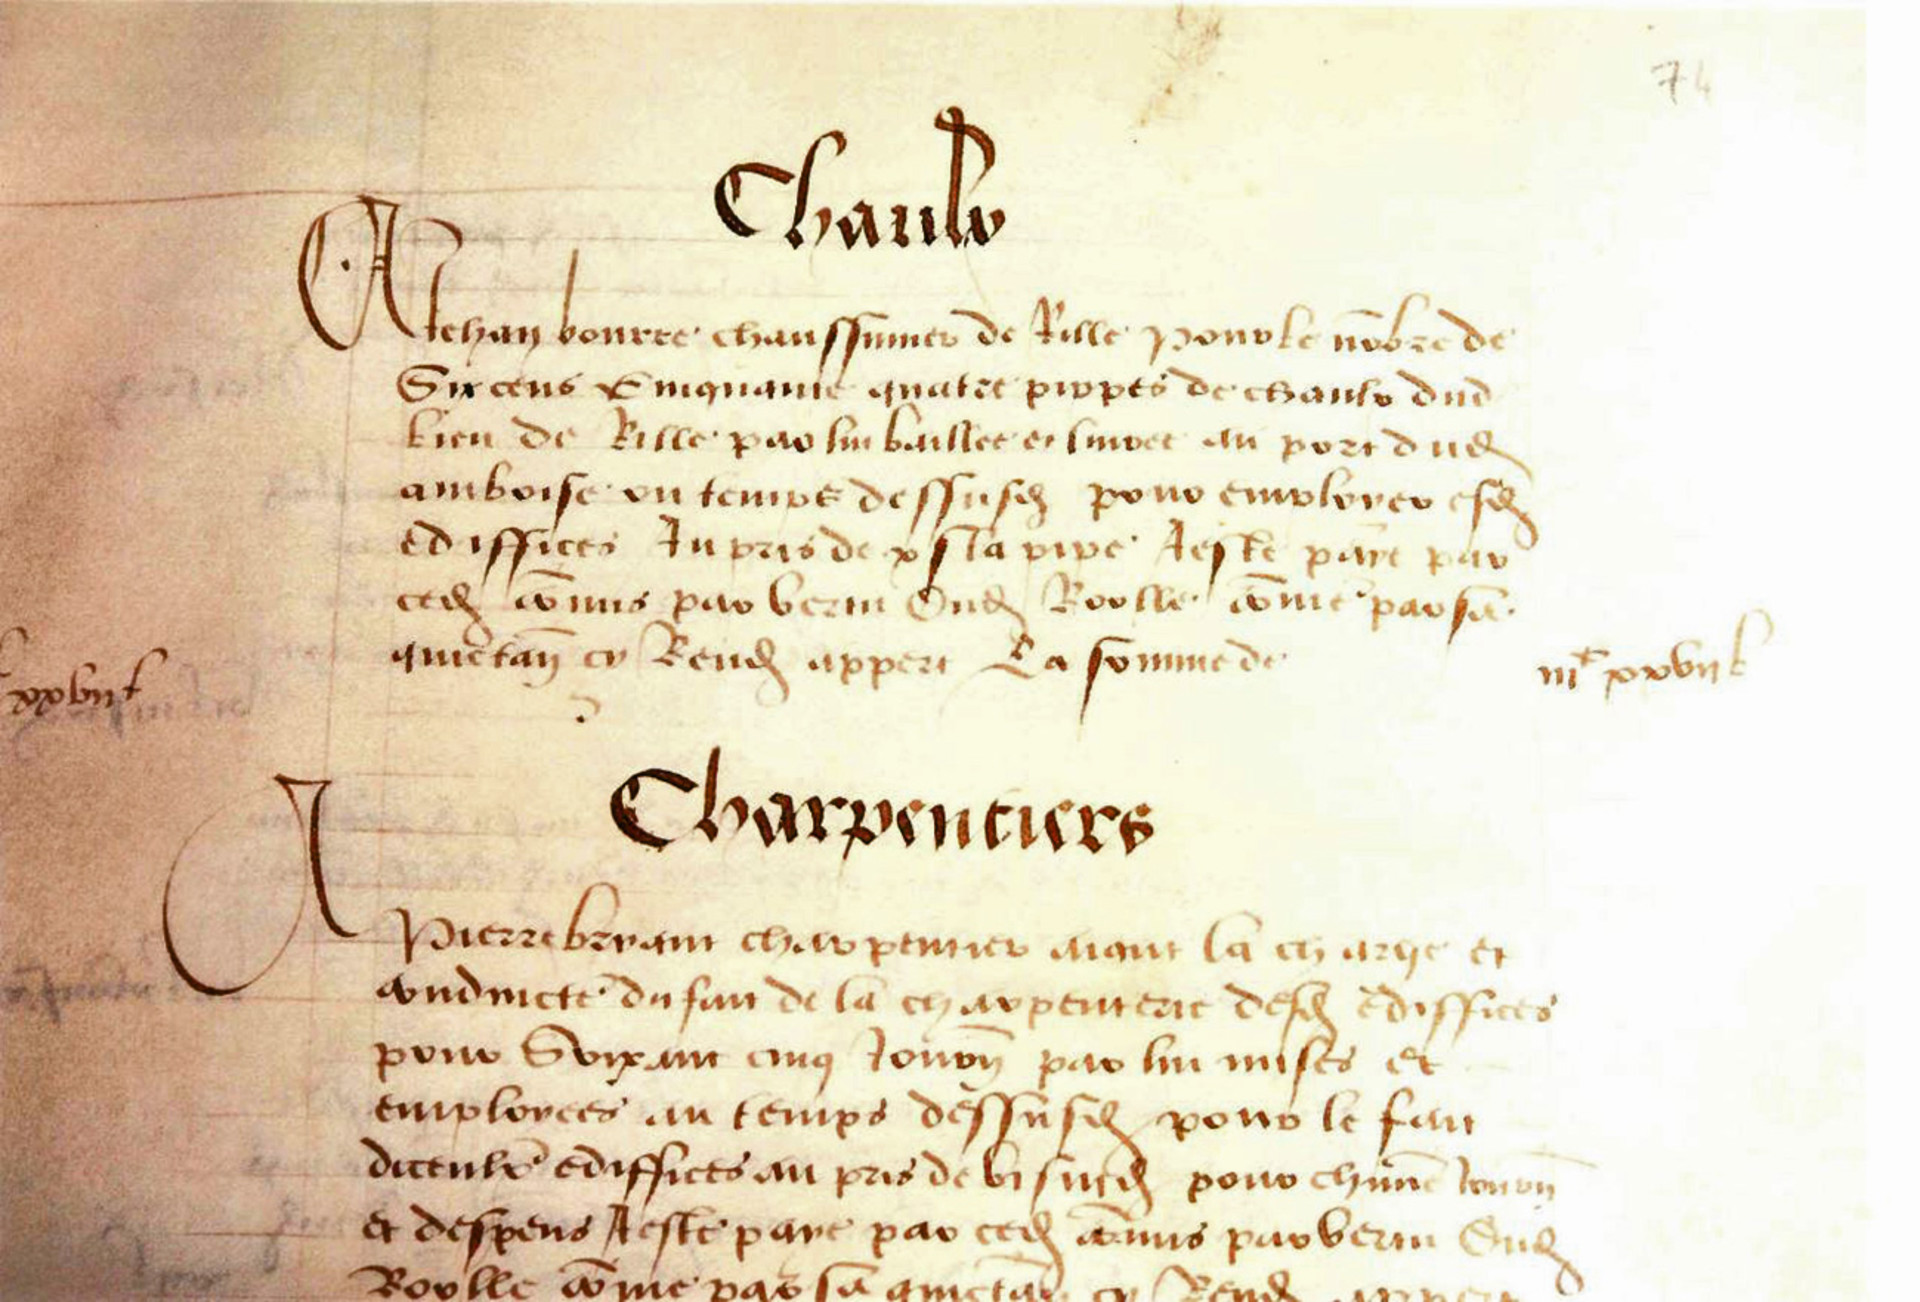 74
Chaulx
A Jehan bourre chaussumier de Rille pour le nōbre de
Six cens Cinquante quatre pippes de chaulx dud
lieu de Rille par lui baillee et livree au port dud
amboise ou temps dessusd pour emploier esd
ediffices Au pris de x s la pipe A este paye par
ced cōmis par vertu Dud Roolle cōme par sa
quictan cy Rend appert La somme de
iiiᶜ xxvii ł
xxvii ł
Charpentiers
A
Pierre bryant charpentier aiant la charge et
conduicte du fait de la charpenterie desd ediffices
pour Soixante cinq Journ par lui mises et
emploiees au temps dessusd pour le fait
diceulx ediffices au pris de vi s pour chūne Journ
et despens A este paye par ced cōmis par vertu Dud
Roolle cōme par sa quictan cy Rend appert